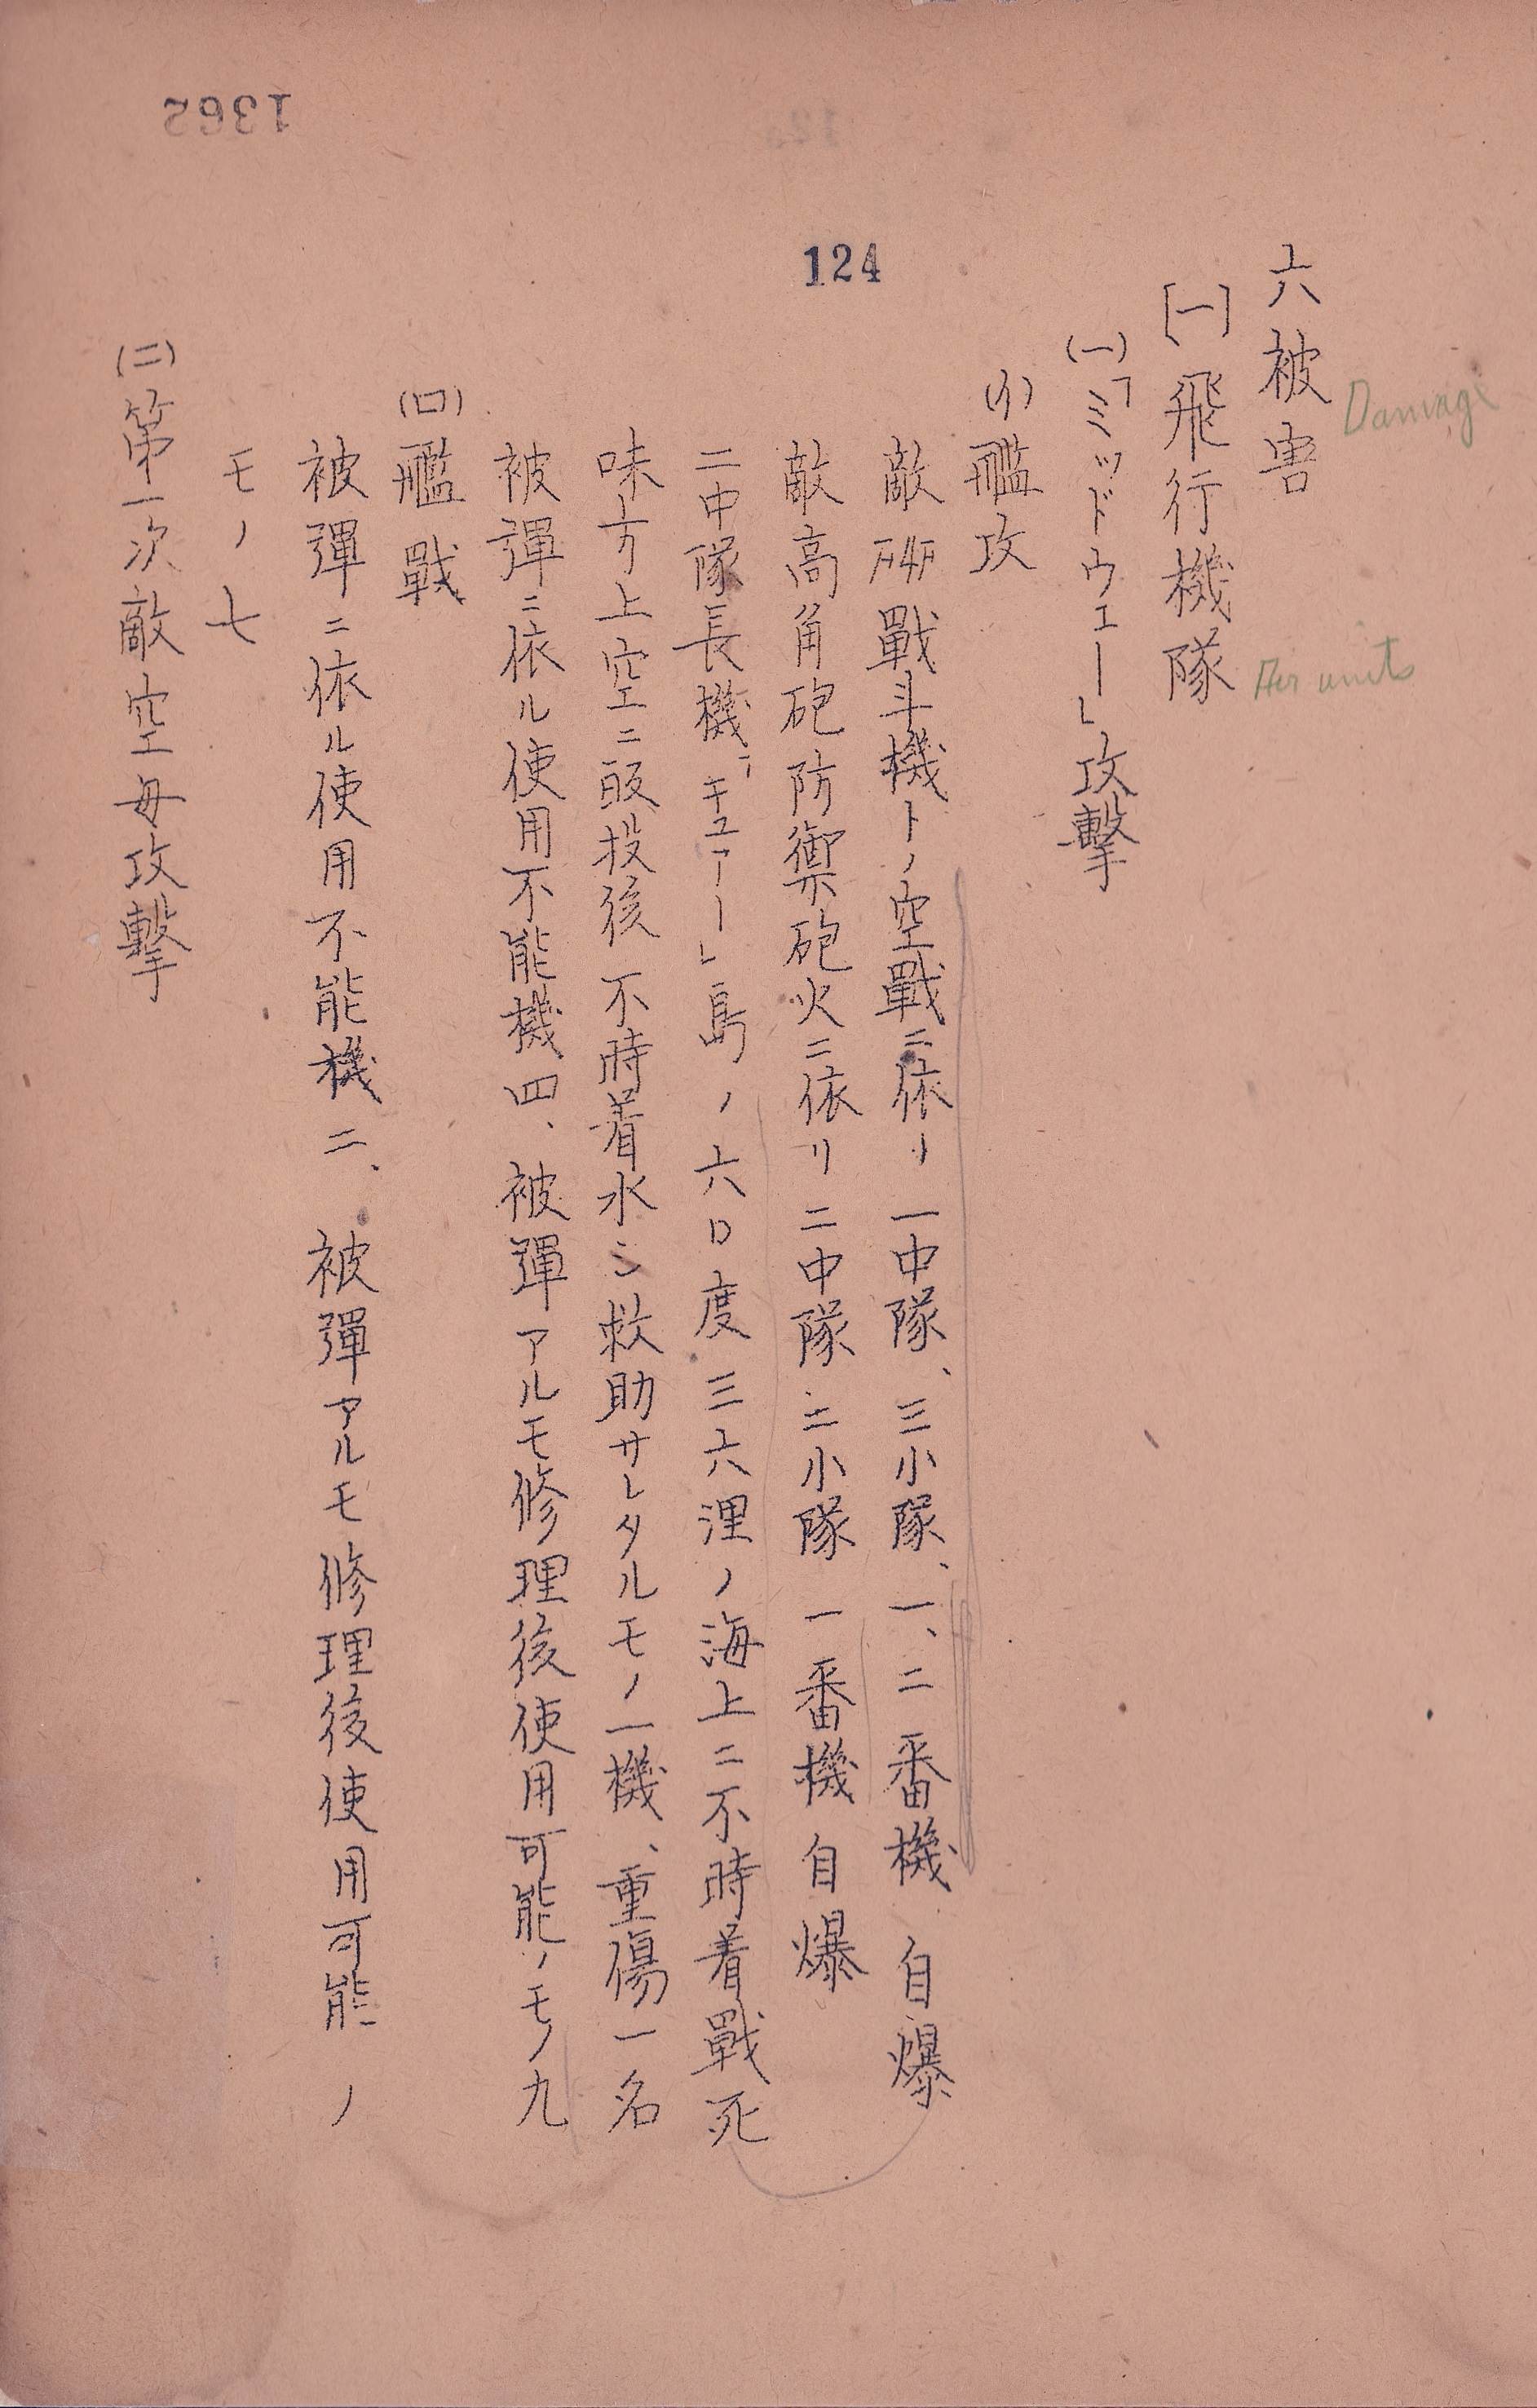 1362
124
六被害
Damage
[一]飛行機隊
Air units
(一)「ミッドウェー」攻撃
(イ)艦攻
敵F4F戰斗機トノ空戰ニ依リ一中隊、三小隊、一、二番機自爆
敵高角砲防禦砲火ニ依リ二中隊二小隊一番機自爆
二中隊長機「キュアー」島ノ六〇度三六浬ノ海上ニ不時着戰死
味方上空ニ皈投後不時着水シ救助サレタルモノ一機、重傷一名
被彈ニ依ル使用不能機四、被彈アルモ修理後使用可能ノモノ九
(ロ)艦戰
被彈ニ依ル使用不能機二、被彈アルモ修理後使用可能ノ
モノ七
(二)第一次敵空母攻撃